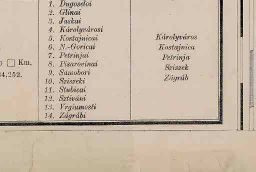 1. Dugoseloi
2. Glinai
3. Jaskai
4. Károlyvárosi
5. Kostajnicai
6. N.-Goricai
7. Petrinjai
8. Pisarovinai
9. Samobori
10. Sziszeki
11. Stubicai
12. Sztivani
13. Vrginmosti
14. Zágrábi
Károlyváros
Kostajnica
Petrinja
Sziszek
Zágráb
□ Km.
4,252.